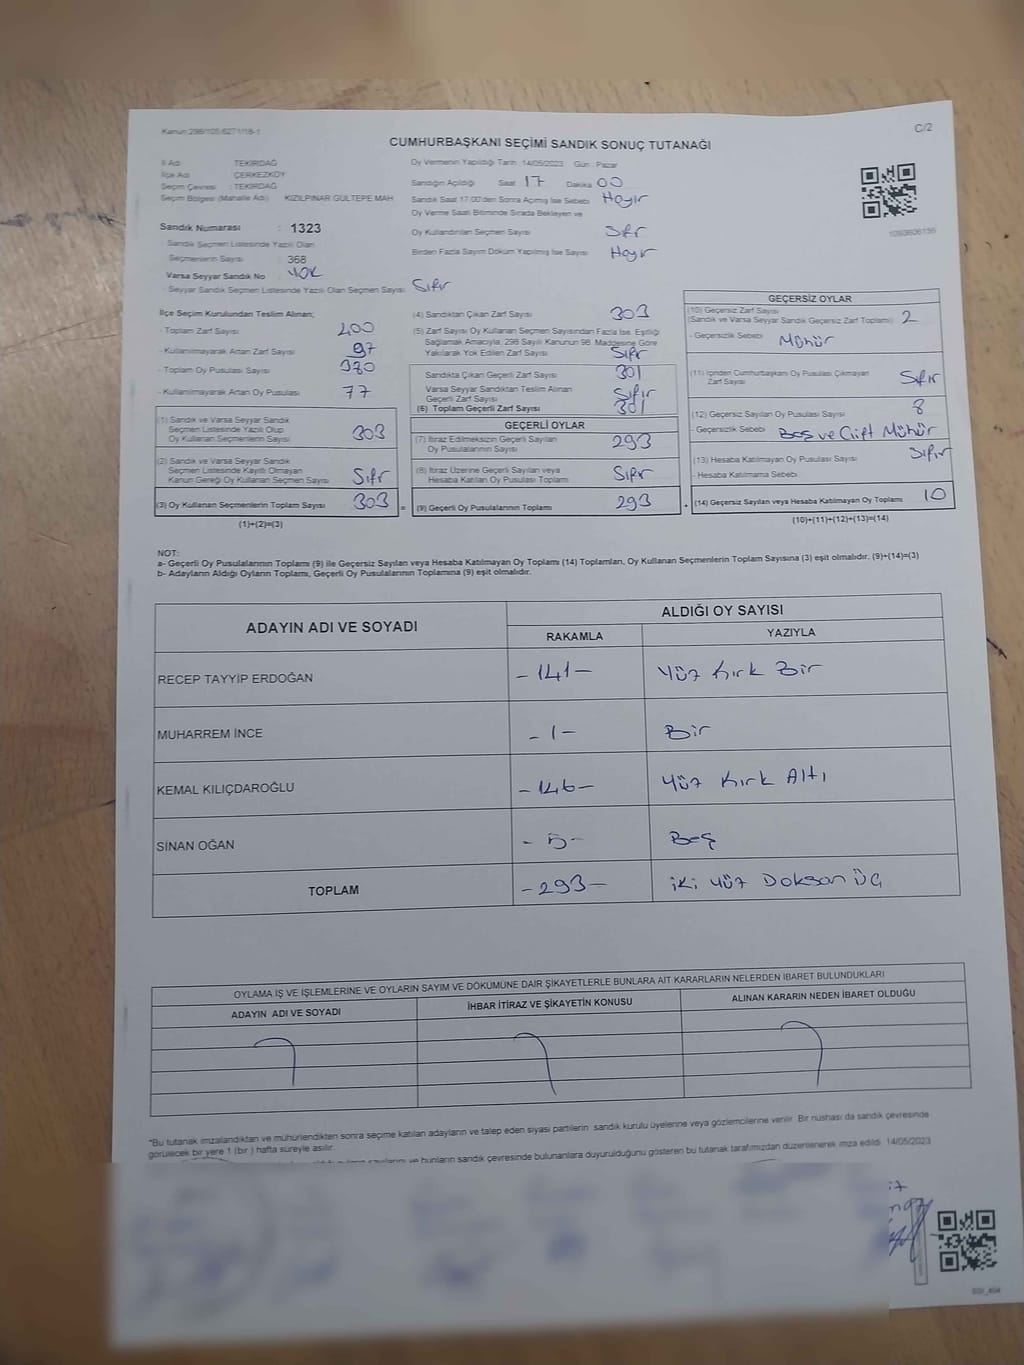 Kanun:298/105;6271/18-1
C/2
CUMHURBAŞKANI SEÇİMİ SANDIK SONUÇ TUTANAĞI
İl Adı TEKİRDAĞ
İlçe Adı ÇERKEZKÖY
Seçim Çevresi : TEKİRDAĞ
Seçim Bölgesi (Mahalle Adı) KIZILPINAR GÜLTEPE MAH
Sandık Numarası : 1323
Sandık Seçmen Listesinde Yazılı Olan
Seçmenlerin Sayısı 368
Varsa Seyyar Sandık No YOK
- Seyyar Sandık Seçmen Listesinde Yazılı Olan Seçmen Sayısı Sıfır
Oy Vermenin Yapıldığı Tarih 14/05/2023 Gün Pazar
Sandığın Açıldığı Saat 17 Dakika 00
Sandık Saat 17:00'den Sonra Açımış İse Sebebi Hayır
Oy Verme Saati Bitiminde Sırada Bekleyen ve
Oy Kullandırılan Seçmen Sayısı Sıfır
Birden Fazla Sayım Döküm Yapılmış İse Sayısı Hayır
1093606156
İlçe Seçim Kurulundan Teslim Alınan;
- Toplam Zarf Sayısı 400
- Kullanılmayarak Artan Zarf Sayısı 97
- Toplam Oy Pusulası Sayısı 380
- Kullanılmayarak Artan Oy Pusulası 77
(1) Sandık ve Varsa Seyyar Sandık
Seçmen Listesinde Yazılı Olup
Oy Kullanan Seçmenlerin Sayısı 303
(2) Sandık ve Varsa Seyyar Sandık
Seçmen Listesinde Kayıtlı Olmayan
Kanun Gereği Oy Kullanan Seçmen Sayısı Sıfır
(3) Oy Kullanan Seçmenlerin Toplam Sayısı 303
(1)+(2)=(3)
(4) Sandıktan Çıkan Zarf Sayısı 303
(5) Zarf Sayısı Oy Kullanan Seçmen Sayısından Fazla İse, Eşitliği
Sağlamak Amacıyla, 298 Sayılı Kanunun 98. Maddesine Göre
Yakılarak Yok Edilen Zarf Sayısı Sıfır
Sandıkta Çıkan Geçerli Zarf Sayısı 301
Varsa Seyyar Sandıktan Teslim Alınan
Geçerli Zarf Sayısı Sıfır
(6) Toplam Geçerli Zarf Sayısı 301
GEÇERLİ OYLAR
(7) İtiraz Edilmeksizin Geçerli Sayılan
Oy Pusulalarının Sayısı 293
(8) İtiraz Üzerine Geçerli Sayılan veya
Hesaba Katılan Oy Pusulası Toplamı Sıfır
= (9) Geçerli Oy Pusulalarının Toplamı 293
GEÇERSİZ OYLAR
(10) Geçersiz Zarf Sayısı
(Sandık ve Varsa Seyyar Sandık Geçersiz Zarf Toplamı) 2
- Geçersizlik Sebebi Mühür
(11) İçinden Cumhurbaşkanı Oy Pusulası Çıkmayan
Zarf Sayısı Sıfır
(12) Geçersiz Sayılan Oy Pusulası Sayısı 8
- Geçersizlik Sebebi Boş ve Çift Mühür
(13) Hesaba Katılmayan Oy Pusulası Sayısı Sıfır
- Hesaba Katılmama Sebebi
+ (14) Geçersiz Sayılan veya Hesaba Katılmayan Oy Toplamı 10
(10)+(11)+(12)+(13)=(14)
NOT:
a- Geçerli Oy Pusulalarının Toplamı (9) ile Geçersiz Sayılan veya Hesaba Katılmayan Oy Toplamı (14) Toplamları, Oy Kullanan Seçmenlerin Toplam Sayısına (3) eşit olmalıdır. (9)+(14)=(3)
b- Adayların Aldığı Oyların Toplamı, Geçerli Oy Pusulalarının Toplamına (9) eşit olmalıdır.
ADAYIN ADI VE SOYADI
ALDIĞI OY SAYISI
RAKAMLA YAZIYLA
RECEP TAYYİP ERDOĞAN -141- Yüz Kırk Bir
MUHARREM İNCE -1- Bir
KEMAL KILIÇDAROĞLU -146- Yüz Kırk Altı
SİNAN OĞAN -5- Beş
TOPLAM -293- iki yüz Doksan Üç
OYLAMA İŞ VE İŞLEMLERİNE VE OYLARIN SAYIM VE DÖKÜMÜNE DAİR ŞİKAYETLERLE BUNLARA AİT KARARLARIN NELERDEN İBARET BULUNDUKLARI
ADAYIN ADI VE SOYADI İHBAR İTİRAZ VE ŞİKAYETİN KONUSU ALINAN KARARIN NEDEN İBARET OLDUĞU
*Bu tutanak imzalandıktan ve mühürlendikten sonra seçime katılan adayların ve talep eden siyasi partilerin sandık kurulu üyelerine veya gözlemcilerine verilir. Bir nüshası da sandık çevresinde
görülecek bir yere 1 (bir) hafta süreyle asılır.
ve bunların sandık çevresinde bulunanlara duyurulduğunu gösteren bu tutanak tarafımızdan düzenlenerek imza edildi. 14/05/2023